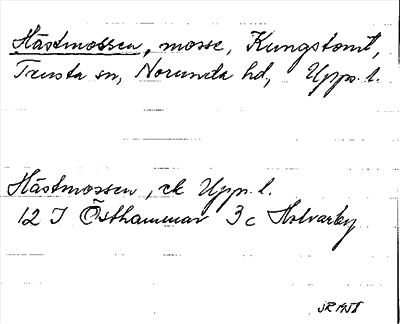 Hästmossen, mosse, Kungstomt,
Trusta sn, Norunda hd, Upps. l.
Hästmossen, ek Upp. l.
12 I Östhammar 3c Holvarby
JR 1958